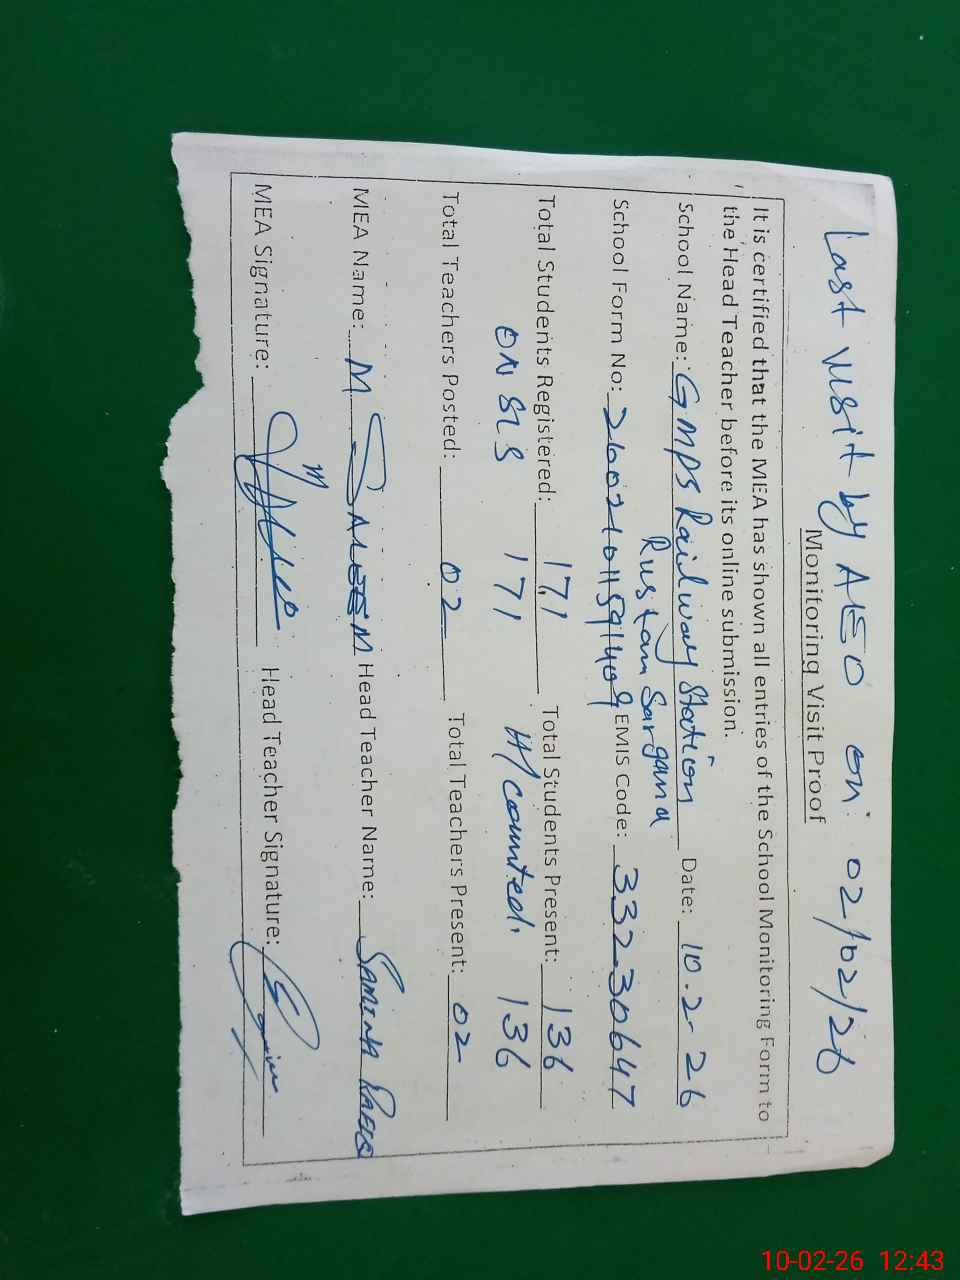 Last visit by AEO on: 02/02/26
Monitoring Visit Proof
It is certified that the MEA has shown all entries of the School Monitoring Form to
the Head Teacher before its online submission.
School Name: GMPS Railway Station Date: 10.2-26
Rustam Sargana
School Form No: 26021011591409 EMIS Code: 33230647
Total Students Registered: 171 Total Students Present: 136
ON SIS 171 H/counted. 136
Total Teachers Posted: 02 Total Teachers Present: 02
MEA Name: M SALEEM Head Teacher Name: SAMINA
MEA Signature: Head Teacher Signature:
10-02-26 12:43